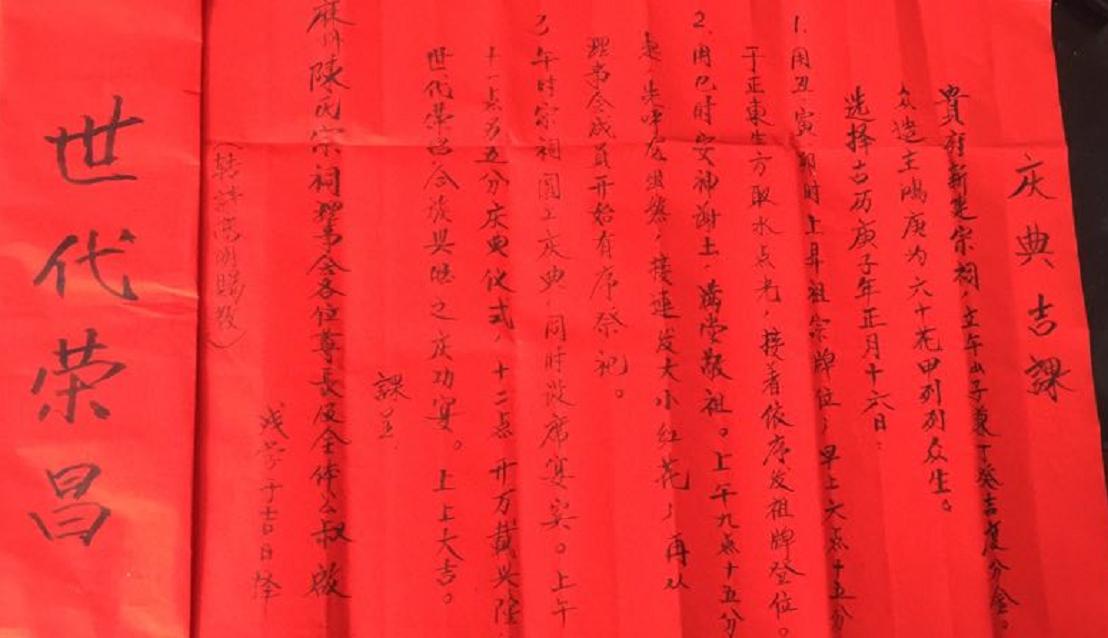 庆典吉課
貴府新建宗祠，立午山子兼丁癸吉度分金。
众造主鳴庚为六十花甲列列众生。
选择吉历庚子年正月十六日：
1. 用丑、寅、卯时上昇祖宗牌位，早上六点十五分
于正東生方取水点光，接着依序发祖牌登位。
2. 用巳时安神谢土，满堂敬祖。上午九点十五分
接連发大小红花，再以
理事会成員开始有序祭祀。
3 午时宗祠圆工庆典，同时设席宴宾。上午
十一点五五分庆典仪式，十二点开万載兴隆，
世代荣昌合族興隆之庆功宴。上上大吉。
課呈：
陳氏宗祠理事会各位尊長及全体公叔啟
浅学于吉日择
世代荣昌